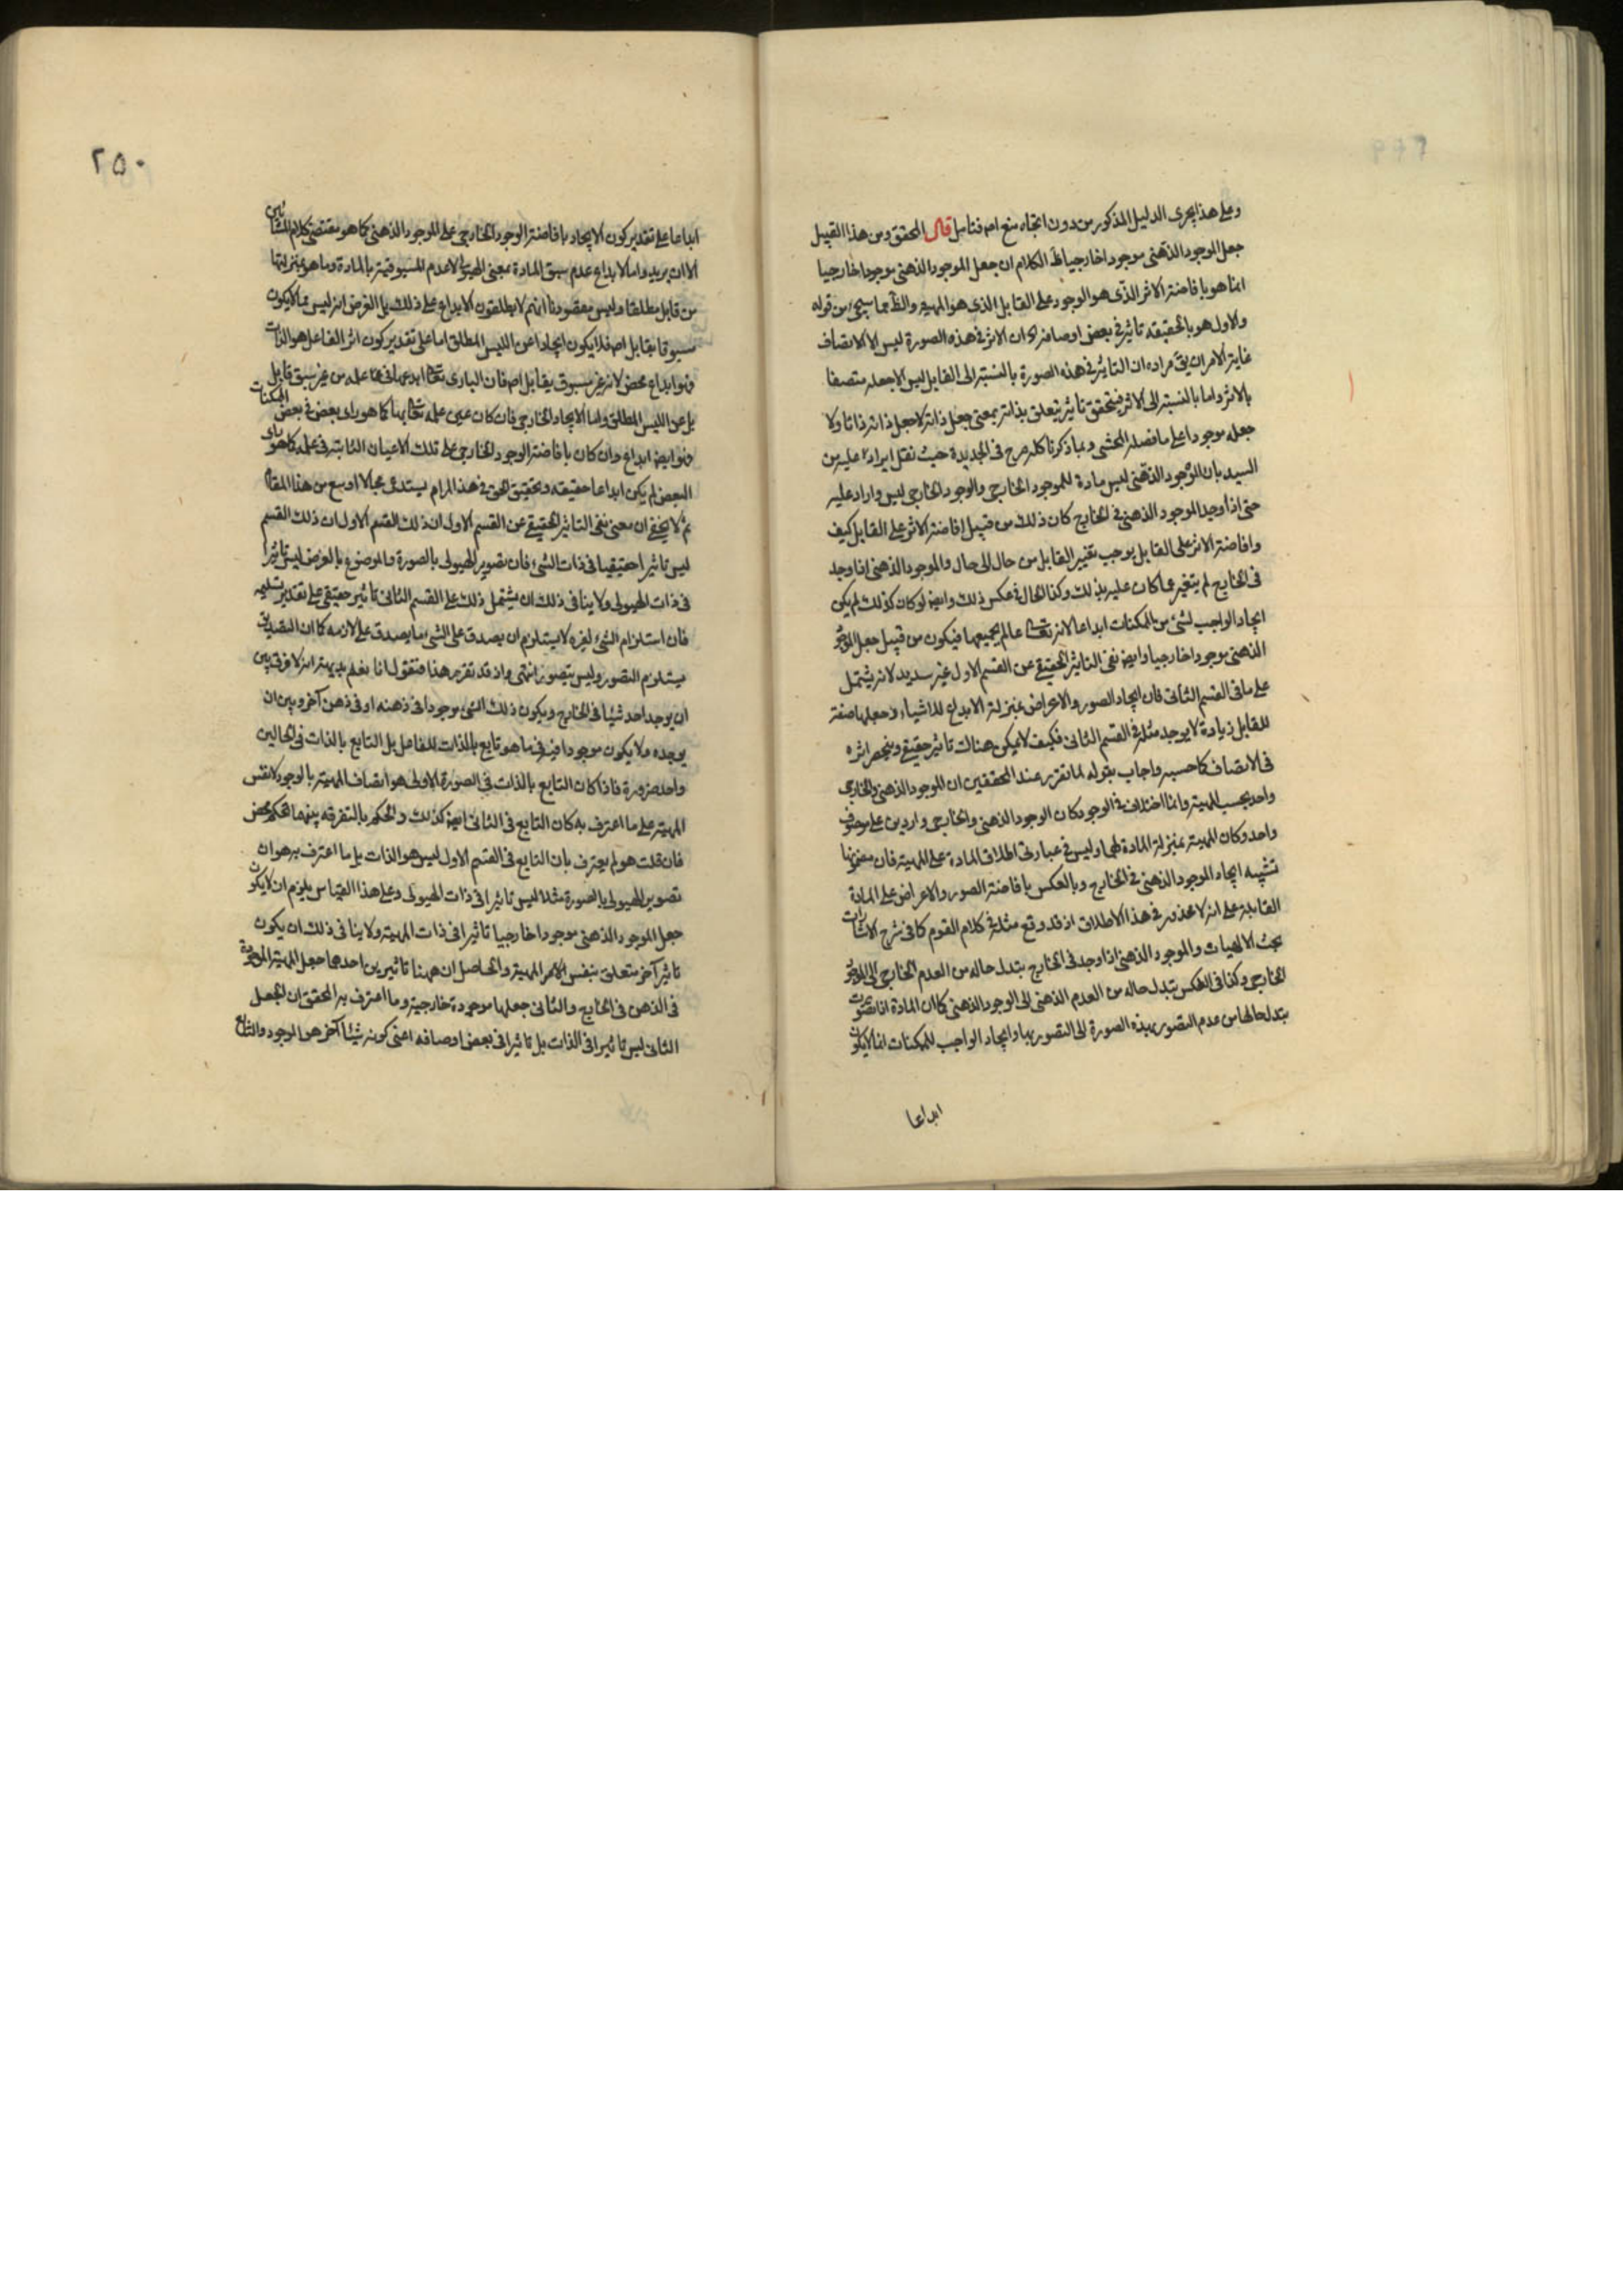 وعلى هذا يجرى الدليل المذكور من دون اتجاه منع اصـ فتامل قال المحقق ومن هذا القبيل
جعل الموجود الذهنى موجودا خارجيا ظ الكلام ان جعل الموجود الذهنى موجودا خارجيا
انما هو بافاضة الاثر الذى هو الوجود على القابل الذى هو المهية والظ مما سيجئ من قوله
والاول هو بالحقيقه تاثير فى بعض اوصافه ان الاثر فى هذه الصورة ليس الا الاتصاف
غاية الامر ان يق مراده ان التاثير فى هذه الصورة بالنسبة الى القابل ليس الا جعله متصفا
بالاثر واما بالنسبة الى الاثر فيتحقق تاثير يتعلق بذاته بمعنى جعل ذاته لا جعل ذاته ذاتا ولا
جعله موجودا على ما فصله المحشى وبما ذكرنا كله صرح فى الجديدة حيث نقل ايرادا عليه من
السيد بان الوجود الذهنى ليس مادة للموجود الخارجى والوجود الخارجى ليس واردا عليه
حتى اذا وجد الموجود الذهنى فى الخارج كان ذلك من قبيل افاضة الاثر على القابل كيف
وافاضة الاثر على القابل يوجب تغيير القابل من حال الى حال والموجود الذهنى اذا وجد
فى الخارج لم يتغير عما كان عليه بذلك وكذا الحال فى عكس ذلك وايضا لو كان كذلك لم يكن
ايجاد الواجب لشئ من الممكنات ابداعا لانه تعالى عالم بجميعها فيكون من قبيل جعل الموجود
الذهنى موجودا خارجيا وايضا نفى التاثير الحقيقى عن القسم الاول غير سديد لانه يشتمل
على ما فى القسم الثانى فان ايجاد الصور والاعراض بمنزلة الابداع للاشياء وجعلها صفة
للقابل زيادة لا يوجد مثله فى القسم الثانى فكيف لا يكون هناك تاثير حقيقى وينحصر اثره
فى الاتصاف كما حسبه واجاب بقوله لما تقرر عند المحققين ان الموجود الذهنى والخارجى
واحد بحسب المهية وانما اختلافه فى الوجود كان الوجود الذهنى والخارجى واردين على موصوف
واحد وكان المهية بمنزلة المادة لهما وليس فى عبارتى اطلاق المادة على المهية فان مضمونها
تشبيه ايجاد الموجود الذهنى فى الخارج وبالعكس بافاضة الصور والاعراض على المادة
القابلة على انه لا محذور فى هذا الاطلاق اذ قد وقع مثله فى كلام القوم كما فى شرح الاشارات
بحث الالهيات والموجود الذهنى اذا وجد فى الخارج يتبدل حاله من العدم الخارجى الى الوجود
الخارجى وكذا فى العكس يتبدل حاله من العدم الذهنى الى الوجود الذهنى كما ان المادة اذا تصورت
يتبدل حالها من عدم التصور بهذه الصورة الى التصور بها وايجاد الواجب للممكنات انما لا يكون
ابداعا
٢٥٠
ابداعا على تقدير كون الايجاد بافاضة الوجود الخارجى على الموجود الذهنى كما هو مقتضى كلام المشائين
الا ان يريدوا بالابداع عدم سبق المادة بمعنى الهيولى لا عدم المسبوقية بالمادة وما هو بمنزلتها
من قابل مطلقا وليس مقصودنا انهم لا يطلقون الابداع على ذلك بل الغرض انه ليس مما لا يكون
مسبوقا بقابل اصـ فلا يكون ايجادا عن الليس المطلق اما على تقدير كون اثر الفاعل هو الذات
فهو ابداع محض لانه غير مسبوق بقابل اصـ فان البارى تعالى ابدع ما فى علمه من غير سبق قابل
بل عن الليس المطلق واما الايجاد الخارجى فان كان عين علمه تعالى بها كما هو راى بعض فى بعض الممكنات
فهو ايضا ابداع وان كان بافاضة الوجود الخارجى على تلك الاعيان الثابتة فى علمه كما هو راى
البعض لم يكن ابداعا حقيقه وتحقيق الحق فى هذا المرام يستدعى مجالا اوسع من هذا المقام
ثم لا يخفى ان معنى نفى التاثير الحقيقى عن القسم الاول ان ذلك القسم الاول ان ذلك القسم
ليس تاثيرا حقيقيا فى ذات الشئ فان تصوير الهيولى بالصورة والموضوع بالعرض ليس تاثيرا
فى ذات الهيولى ولا ينافى ذلك ان يشتمل ذلك على القسم الثانى تاثير حقيقى على تقدير تسليمه
فان استلزام الشئ لغيره لا يستلزم ان يصدق على الشئ ما يصدق على لازمه كما ان التصديق
يستلزم التصور وليس بتصور انتهى واذ قد تقرر هذا فنقول انا نعلم بديهة انه لا فرق بين
ان يوجد احد شيئا فى الخارج ويكون ذلك الشئ موجودا فى ذهنه او فى ذهن آخر وبين ان
يوجده ولا يكون موجودا فيه فى ما هو تابع بالذات للفاعل بل التابع بالذات فى الحالين
واحد ضرورة فاذا كان التابع بالذات فى الصورة الاولى هو اتصاف المهية بالوجود لا نفس
المهية على ما اعترف به كان التابع فى الثانى ايضا كذلك والحكم بالتفرقه بينهما تحكم محض
فان قلت هو لم يعترف بان التابع فى القسم الاول ليس هو الذات بل ما اعترف به هو ان
تصوير الهيولى بالصورة مثلا ليس تاثيرا فى ذات الهيولى وعلى هذا القياس يلزم ان لا يكون
جعل الموجود الذهنى موجودا خارجيا تاثيرا فى ذات المهية ولا ينافى ذلك ان يكون
تاثير آخر متعلق بنفس الامر المهية والحاصل ان ههنا تاثيرين احدهما جعل المهية الموجودة
فى الذهن فى الخارج والثانى جعلها موجودة خارجية وما اعترف به المحقق ان الجعل
الثانى ليس تاثيرا فى الذات بل تاثيرا فى بعض اوصافه اعنى كونه شيئا آخر هو الموجود والتابع